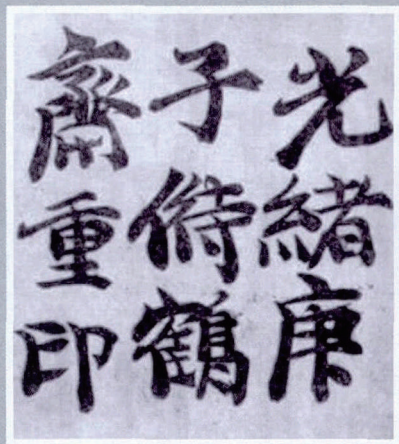 光緒庚
子侍鶴
齋重印